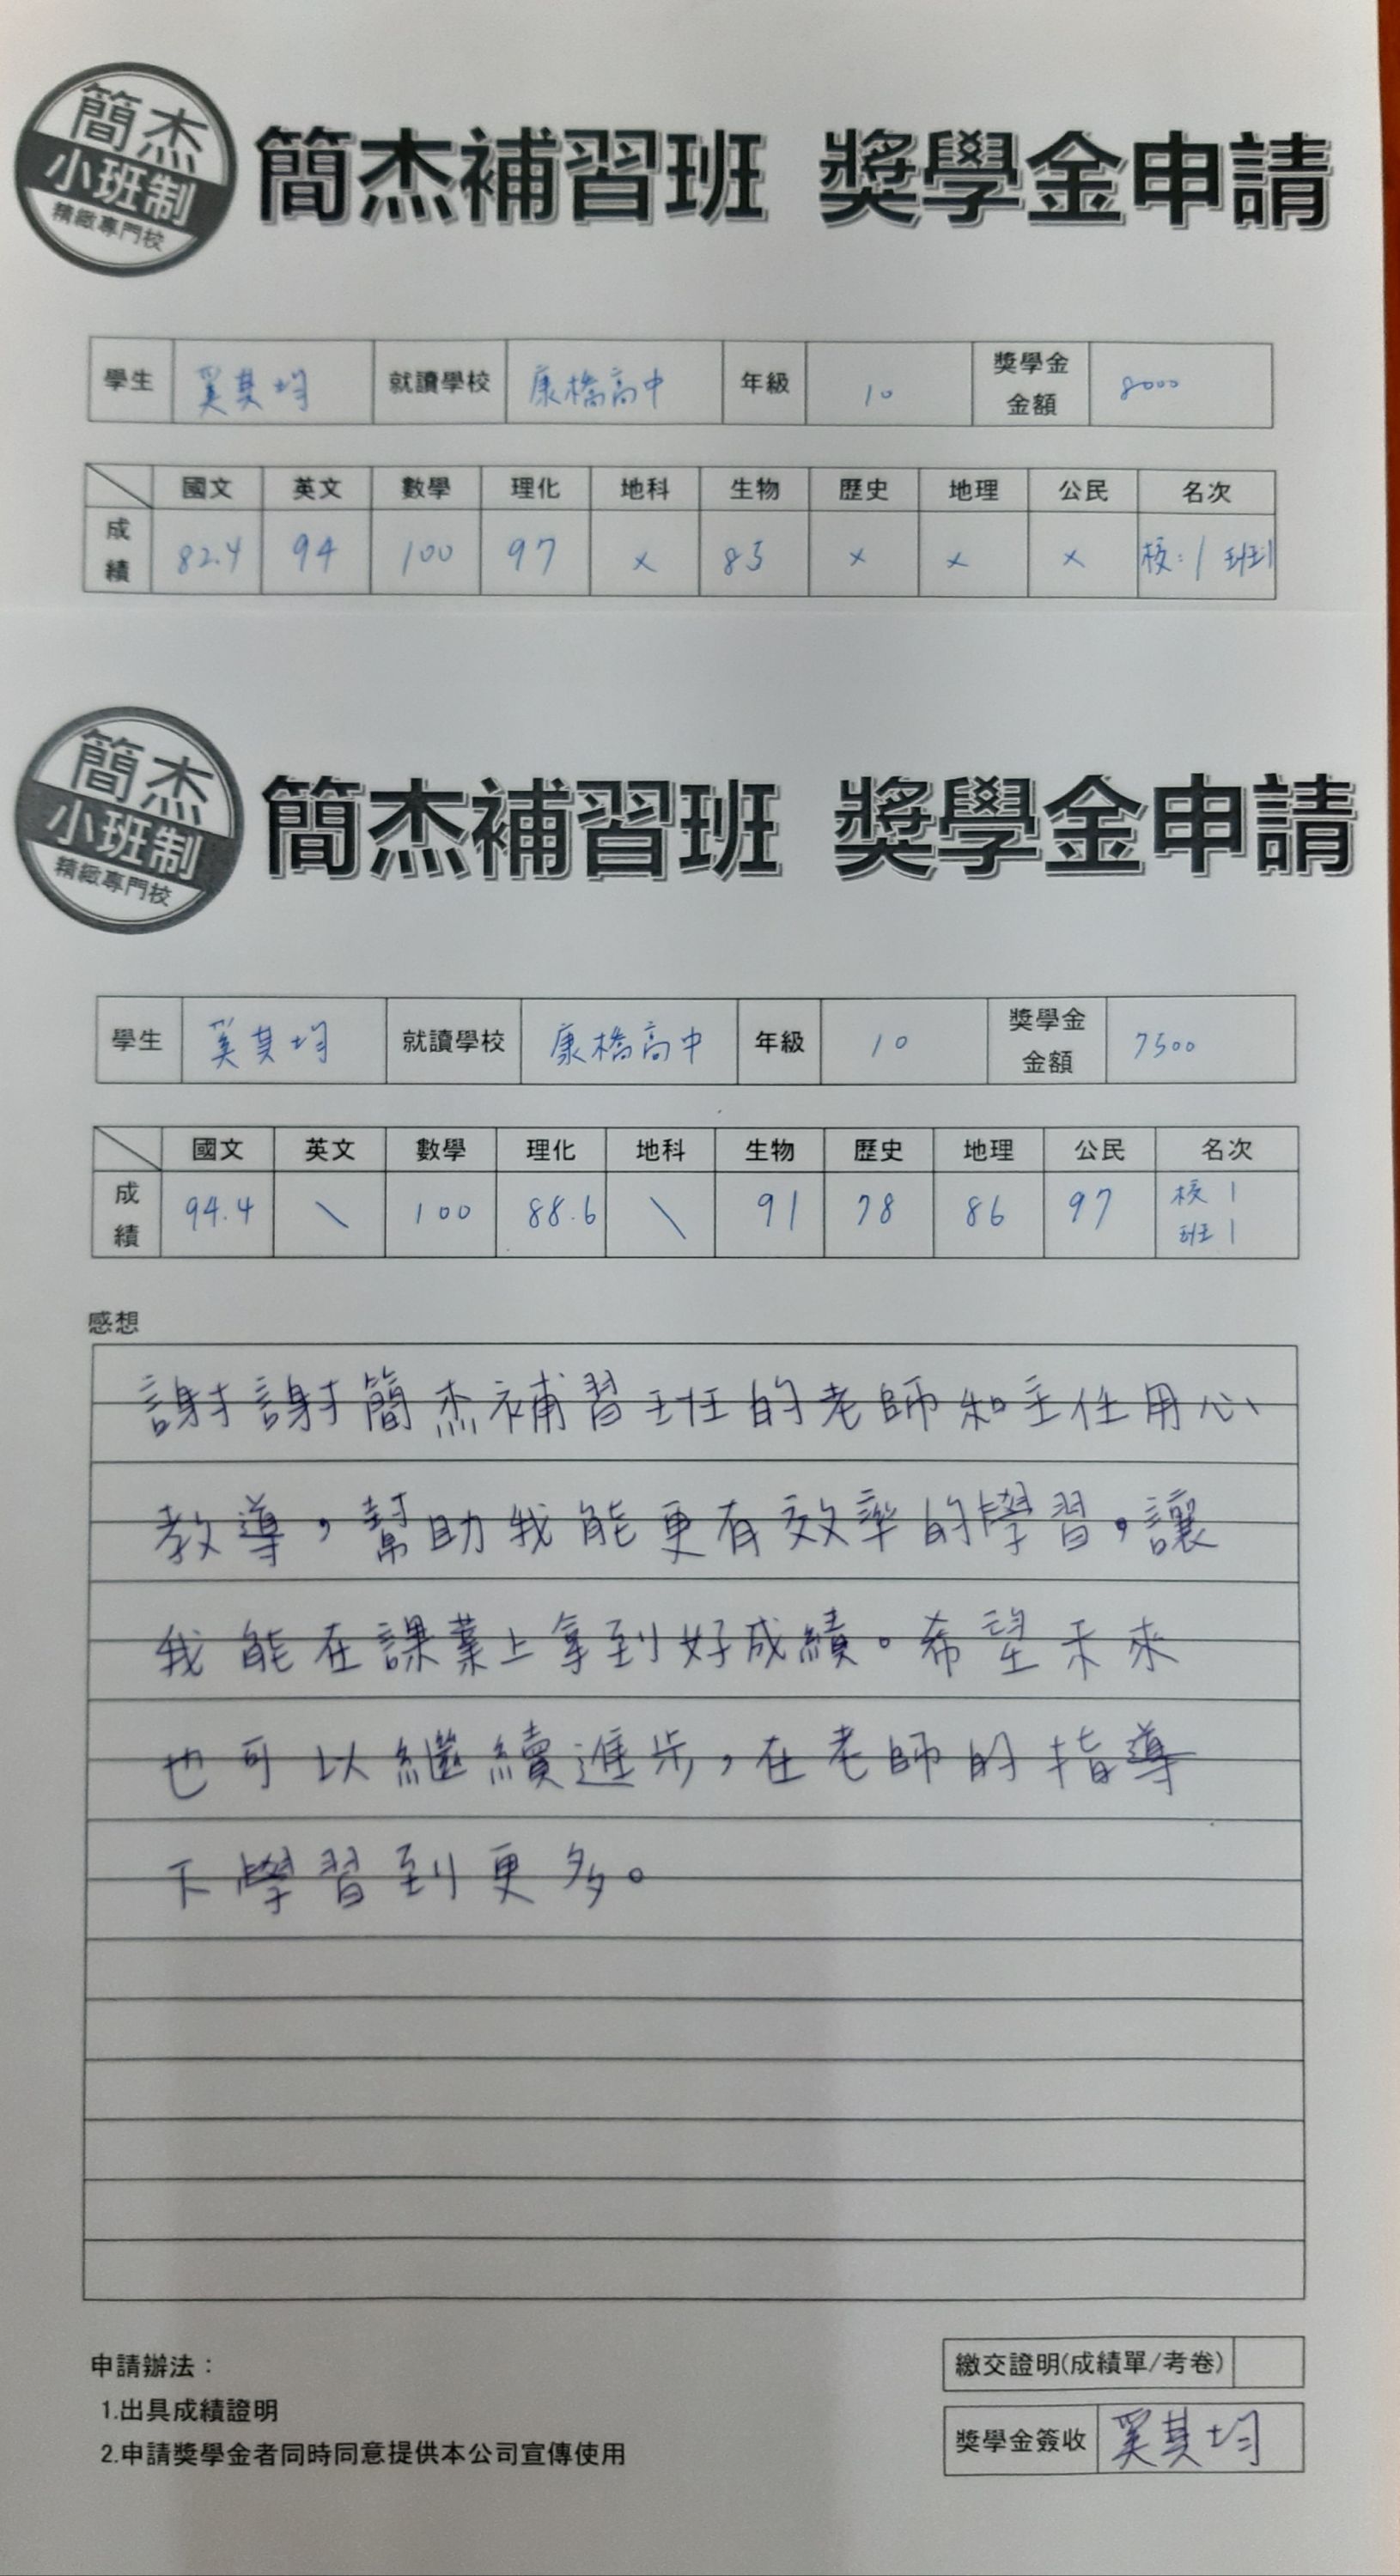 簡杰
小班制
精緻專門校
簡杰補習班 獎學金申請
學生 奚其均 就讀學校 康橋高中 年級 10 獎學金金額 8000
國文 英文 數學 理化 地科 生物 歷史 地理 公民 名次
成績 82.4 94 100 97 x 85 x x x 校:1 班1
簡杰
小班制
精緻專門校
簡杰補習班 獎學金申請
學生 奚其均 就讀學校 康橋高中 年級 10 獎學金金額 7500
國文 英文 數學 理化 地科 生物 歷史 地理 公民 名次
成績 94.4 \ 100 88.6 \ 91 78 86 97 校1 班1
感想
謝謝簡杰補習班的老師和主任用心
教導,幫助我能更有效率的學習,讓
我能在課業上拿到好成績。希望未來
也可以繼續進步,在老師的指導
下學習到更多。
申請辦法:
1.出具成績證明
2.申請獎學金者同時同意提供本公司宣傳使用
繳交證明(成績單/考卷)
獎學金簽收 奚其均